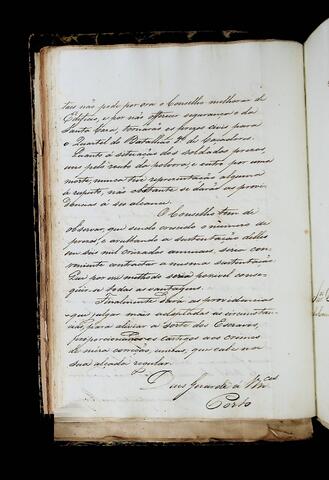 taes não pode por ora o Conselho melhorar de
Edificio, e por não offerecer segurança o da
Santa Caza, tornarão os prezos civis para
o Quartel do Batalhão 7º de Caçadores.
Quanto à situação dos soldados prezos,
uns pelo roubo da polvora, e outro por uma
morte, nunca tive representação alguma
a respeito, não obstante se darão as provi-
dencias a seu alcance.
O Conselho tem de
observar, que sendo crescido o numero de
prezos, e avultando a sustentação delles
em seis mil cruzados annuaes, seria con-
veniente contratar a mesma sustentação
que por um methodo seria possivel conse-
guir-se todas as vantagens.
Finalmente dará as providencias
que julgar mais adaptadas às circunstan-
cias, para aliviar a sorte dos Escravos,
proporcionando os castigos aos crimes
de mera correição, unicas, que cabe na
sua alçada cohibir.
Deos Guarde a Vmces
Porto